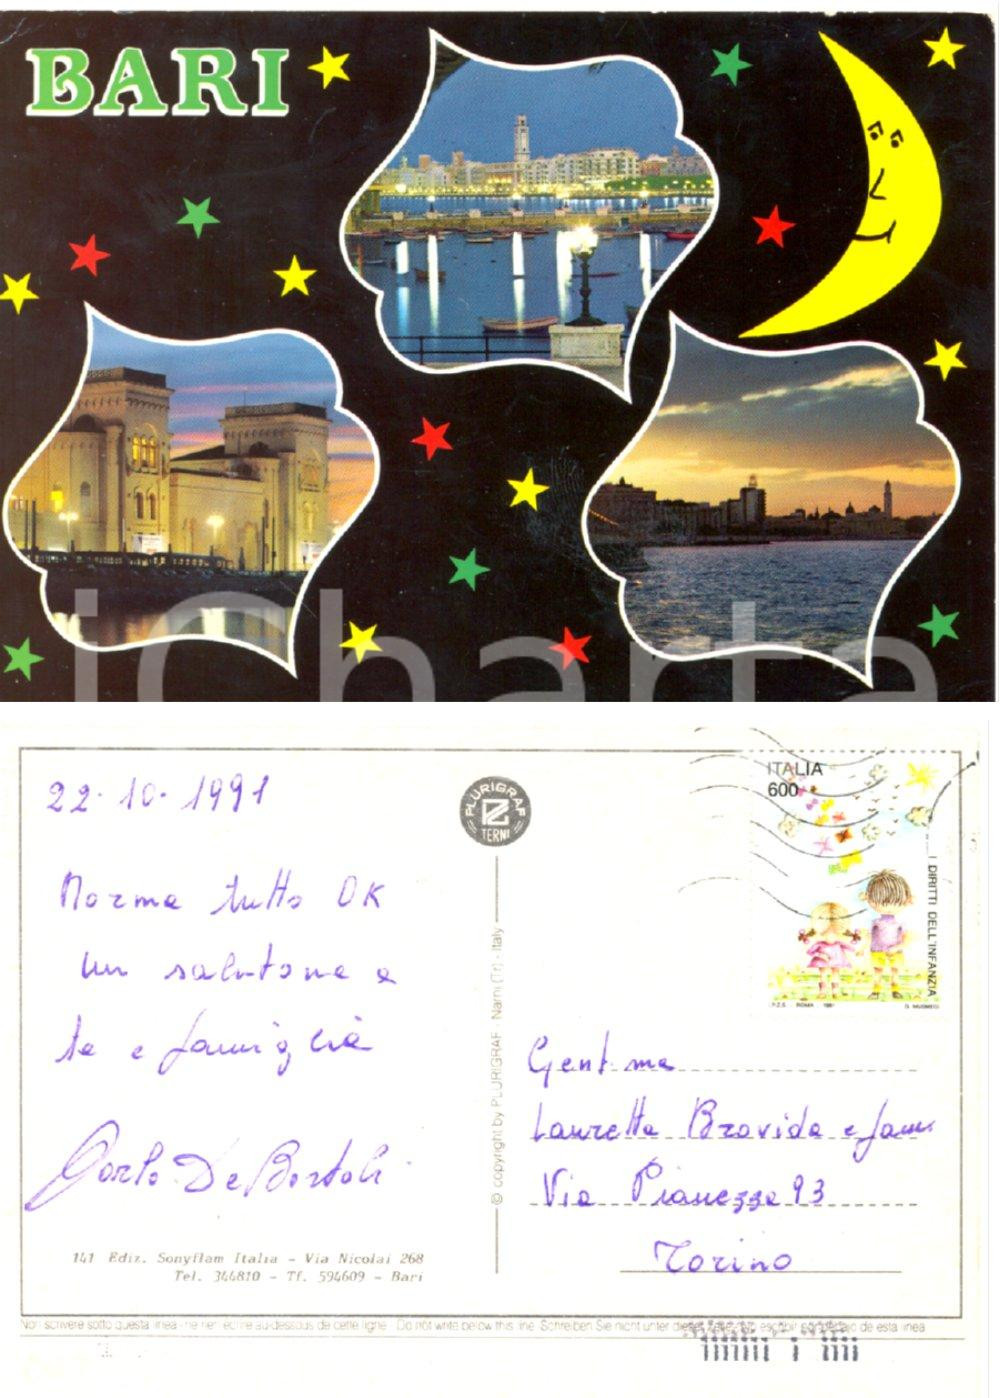 BARI
iCharta
22·10·1991
Norma tutto OK
un salutone a
te e famiglia
Carlo De Bortoli
141 Ediz. Sonyflam Italia - Via Nicolai 268
Tel. 344810 - Tf. 594609 - Bari
PLURIGRAF
TERNI
© copyright by PLURIGRAF - Narni (Tr) - Italy
ITALIA
600
I DIRITTI DELL'INFANZIA
I.P.Z.S. ROMA 1991
Gent.ma
Lauretta Bravida e fam
Via Pianezza 93
Torino
Non scrivere sotto questa linea - ne rien écrire au-dessous de cette ligne - Do not write below this line - Schreiben Sie nicht unter dieser de esta linea